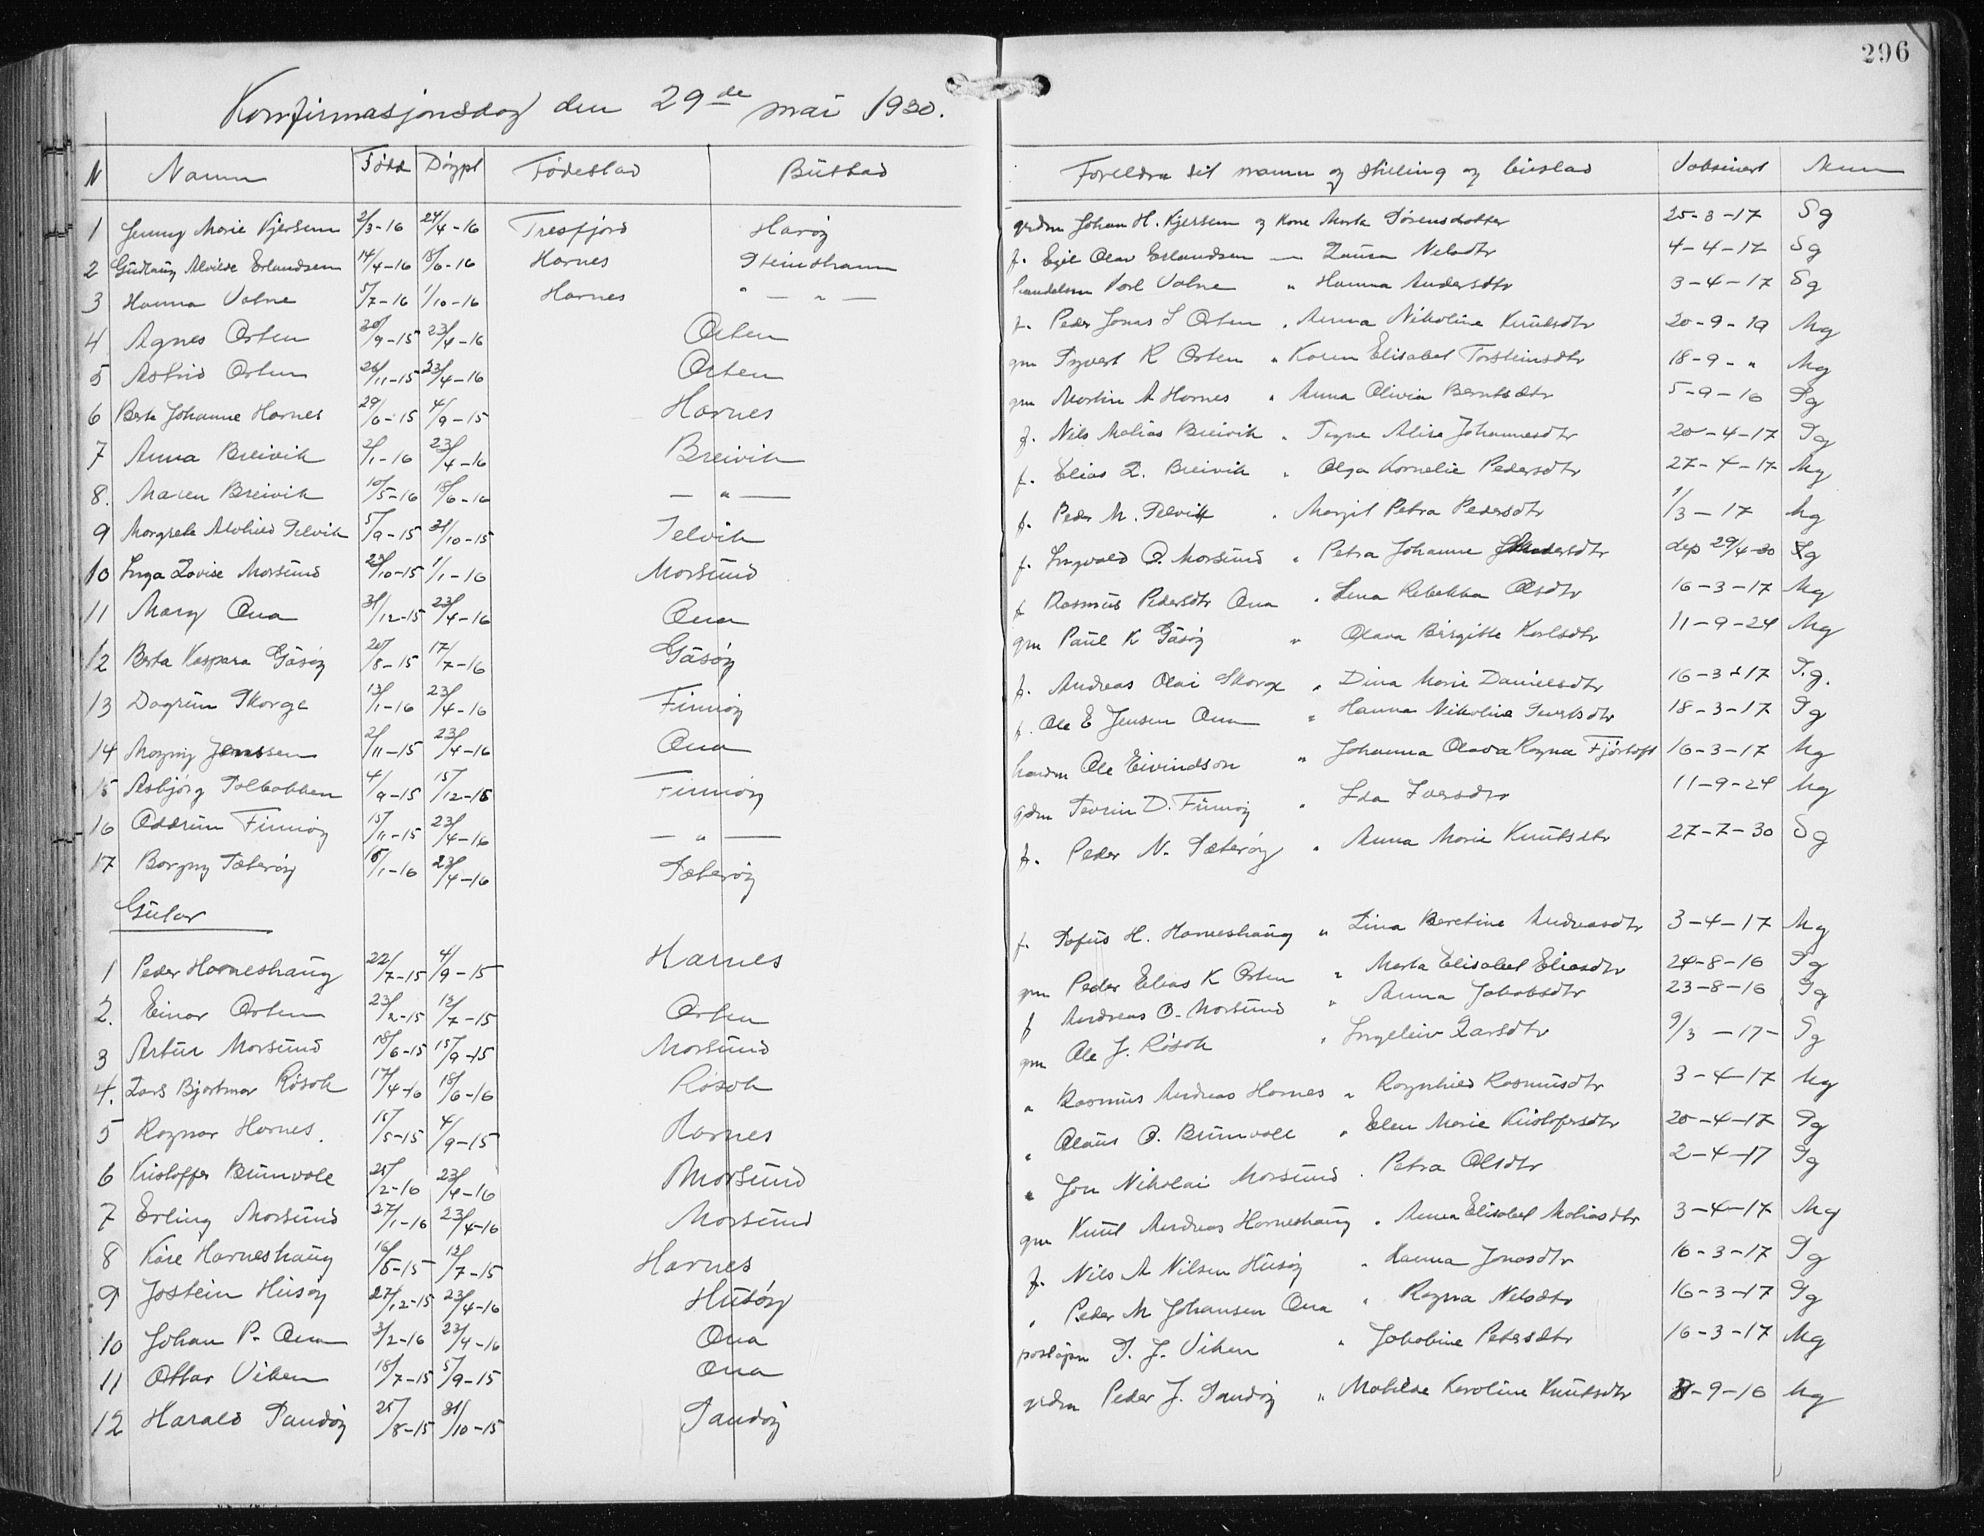 296
Konfirmasjonsdag den 29de mai 1930.
N Namn Född Döypt Födestad Bustad Foreldra sit namn og stilling og bustad Vaksinert Merk
1 Jenny Marie Kjersem 2/3-16 24/4-16 Tresfjord Haröy grdm Johan H. Kjersem og kone Marta Sörensdatter 25-3-17 Sg
2 Gudlaug Alvilde Erlandsen 14/4-16 18/6-16 Harnes Steinshamn f. Egil Olav Erlandsen — Laura Nilsdtr 4-4-17 Sg
3 Hanna Valne 5/7-16 1/10-16 Harnes " — " — handelsm Karl Valne " Hanna Andersdtr 3-4-17 Sg
4 Agnes Orten 20/9-15 23/4-16 Orten f. Peder Jonas S Orten " Anna Nikoline Knutsdtr 20-9-19 Mg
5 Astrid Orten 26/11-15 23/4-16 Orten gm Syvert K Orten " Karen Elisabet Torsteinsdtr 18-9-" Mg
6 Berta Johanne Harnes 29/6-15 4/9-15 Harnes gm Martin A Harnes " Anna Olivia Berntsdtr 5-9-16 Sg
7 Anna Breivik 2/1-16 23/4-16 Breivik f. Nils Matias Breivik " Signe Alise Johannesdtr 20-4-17 Sg
8. Maren Breivik 10/5-16 18/6-16 — " — f. Elias L. Breivik " Olga Kornelie Pedersdtr 27-4-17 Mg
9 Margrete Alvhild Selvik 5/9-15 31/10-15 Selvik f. Peder M. Selvik " Margit Petra Pedersdtr 1/3-17 Mg
10 Inga Lovise Morsund 23/10-15 1/1-16 Morsund f. Ingvald O. Morsund " Petra Johanne dep 29/4-30 Sg
11 Mary Ona 31/12-15 23/4-16 Ona f Rasmus Pedersdtr Ona " Lena Rebekka Olsdtr 16-3-17 Mg
12 Berta Kaspara Gåsöy 20/8-15 17/7-16 Gåsöy gm Paul K Gåsöy " Olava Birgitte Karlsdtr 11-9-24 Mg
13 Dagrun Skorge 13/1-16 23/4-16 Finnöy f. Andreas Olai Skorge " Dina Marie Danielsdtr 16-3-17 S.g.
14 Magny Jenssen 2/11-15 23/4-16 Ona f. Ole E Jensen Ona " Hanna Nikoline Sivertsdtr 18-3-17 Sg
15 Asbjörg Solbakken 4/9-15 15/12-15 Finnöy handm Ole Eivindson " Johanna Olava Ragna Fjörtoft 16-3-17 Mg
16 Oddrun Finnöy 15/11-15 23/4-16 — " — grdm Severin D. Finnöy " Ida Iversdtr 11-9-24 Mg
17 Borgny Sæteröy 8/1-16 23/4-16 Sæteröy f. Peder N. Sæteröy " Anna Marie Knutsdtr 27-7-30 Sg
Gutar
1 Peder Harneshaug 22/7-15 4/9-15 Harnes f. Sofus H. Harneshaug " Lina Beretine Andreasdtr 3-4-17 Mg
2. Einar Orten 23/2-15 13/7-15 Orten gm Peder Elias K Orten " Marta Elisabet Eliasdtr 24-8-16 Sg
3 Artur Morsund 18/6-15 15/9-15 Morsund f Andreas O. Morsund " Anna Jakobsdtr 23-8-16 Sg
4. Lars Bjartmar Rösok 17/4-16 18/6-16 Rösok gm Ole J. Rösok " Ingeleiv Larsdtr 9/3-17- Sg
5 Ragnar Harnes. 15/5-15 4/9-15 Harnes " Rasmus Andreas Harnes " Ragnhild Rasmusdtr 3-4-17 Mg
6 Kristoffer Brunvoll 25/2-16 23/4-16 Morsund " Olaus O. Brunvoll " Elen Marie Kristofersdtr 20-4-17 Sg
7 Erling Morsund 27/1-16 23/4-16 Morsund " Jon Nikolai Morsund " Petra Olsdtr 2-4-17 Sg
8 Kåre Harneshaug 16/5-15 13/7-15 Harnes gm Knut Andreas Harneshaug " Anna Elisabet Matiasdtr 3-4-17 Mg
9 Jostein Husöy 27/12-15 23/4-16 Husöy f. Nils A Nilsen Husöy " Hanna Jonasdtr 16-3-17 Sg
10 Johan P. Ona 3/2-16 23/4-16 Ona " Peder M Johansen Ona " Ragna Nilsdtr 16-3-17 Sg
11 Ottar Viken 18/7-15 5/9-15 Ona postopn S. J. Viken " Jakobine Petersdtr 16-3-17 Mg
12 Harald Sandöy 25/8-15 31/10-15 Sandöy grdm Peder J. Sandöy " Matilde Karoline Knutsdtr 8-9-16 Mg